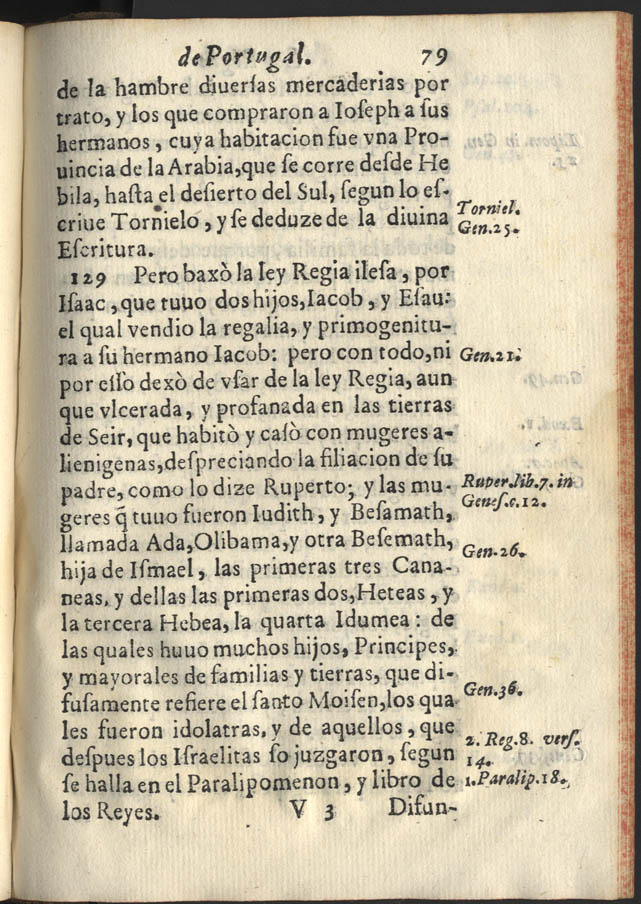 de Portugal. 79
de la hambre diuerſas mercaderias por
trato, y los que compraron a Ioſeph a ſus
hermanos, cuya habitacion fue vna Pro-
uincia de la Arabia, que ſe corre deſde He
bila, haſta el deſierto del Sul, ſegun lo eſ-
criue Tornielo, y ſe deduze de la diuina
Torniel.
Gen.25.
Eſcritura.
129 Pero baxò la ley Regia ileſa, por
Iſaac, que tuuo dos hijos, Iacob, y Eſau:
el qual vendio la regalia, y primogenitu-
ra a ſu hermano Iacob: pero con todo, ni
Gen.21.
por eſſo dexò de vſar de la ley Regia, aun
que vlcerada, y profanada en las tierras
de Seir, que habitò y caſò con mugeres a-
lienigenas, deſpreciando la filiacion de ſu
padre, como lo dize Ruperto; y las mu-
Ruper.lib.7. in
Geneſ.c.12.
geres q̃ tuuo fueron Iudith, y Beſamath,
llamada Ada, Olibama, y otra Beſemath,
Gen.26.
hija de Iſmael, las primeras tres Cana-
neas, y dellas las primeras dos, Heteas, y
la tercera Hebea, la quarta Idumea: de
las quales huuo muchos hijos, Principes,
y mayorales de familias y tierras, que di-
fuſamente refiere el ſanto Moiſen, los qua
Gen.36.
les fueron idolatras, y de aquellos, que
deſpues los Iſraelitas ſo juzgaron, ſegun
2. Reg.8. verſ.
14.
ſe halla en el Paralipomenon, y libro de
1.Paralip.18.
los Reyes.
V 3 Difun-